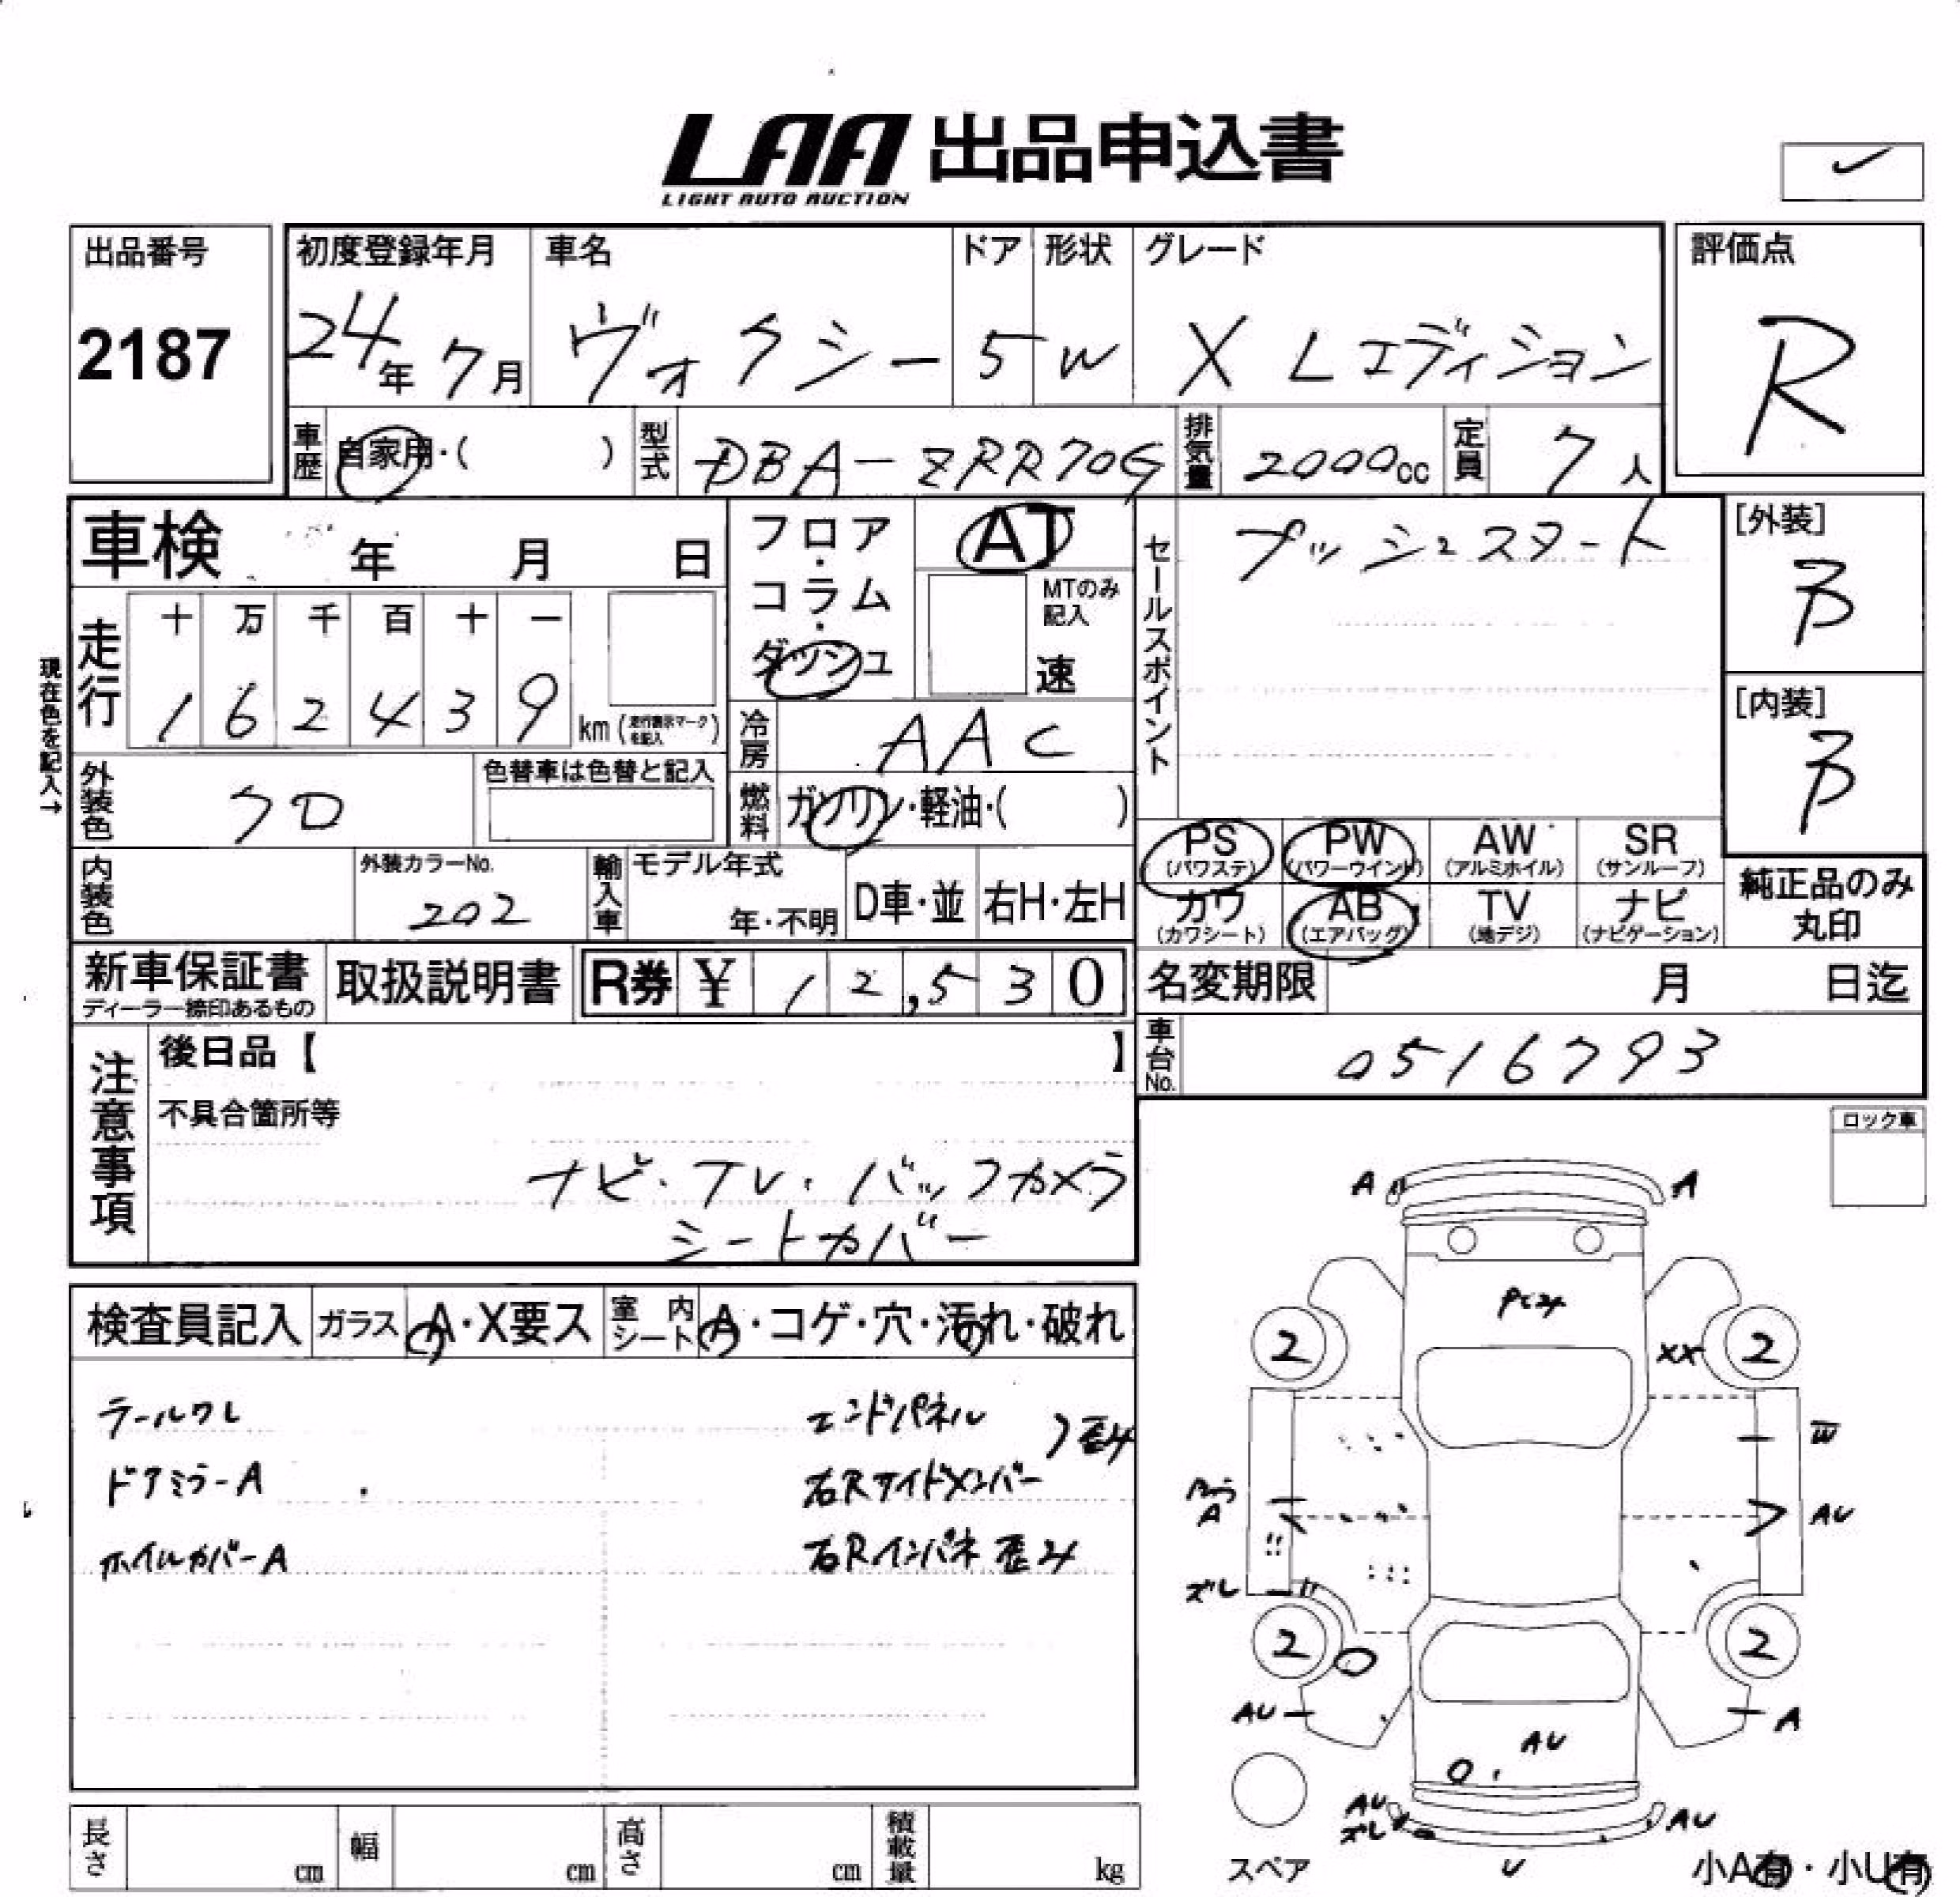 LAA 出品申込書
LIGHT AUTO AUCTION
出品番号
2187
初度登録年月 車名 ドア 形状 グレード
24年 7月 ヴォクシー 5 W X Lエディション
評価点
R
車歴 自家用・( ) 型式 DBA-ZRR70G 排気量 2000cc 定員 7人
車検 年 月 日
フロア・コラム・ダッシュ
AT
MTのみ記入
速
走行 十 万 千 百 十 一
1 6 2 4 3 9 km (走行表示マークを記入)
現在色を記入→
冷房 AAC
外装色 クロ 色替車は色替と記入
燃料 ガソリン・軽油・( )
内装色 外装カラーNo. 202
輸入車 モデル年式 年・不明 D車・並 右H・左H
新車保証書 ディーラー捺印あるもの
取扱説明書
R券 ¥ 12,530
セールスポイント プッシュスタート
[外装]
B
[内装]
B
PS (パワステ) PW (パワーウインド) AW (アルミホイル) SR (サンルーフ)
カワ (カワシート) AB (エアバッグ) TV (地デジ) ナビ (ナビゲーション)
純正品のみ丸印
名変期限 月 日迄
車台No. 0516793
注意事項
後日品【 】
不具合箇所等
ナビ・TV・バックカメラ
シートカバー
検査員記入 ガラス A・X要ス 室内シート A・コゲ・穴・汚れ・破れ
テールワレ
ドアミラーA
ホイルカバーA
エンドパネル
右Rサイドメンバー
歪み
右Rインパネ 歪み
ロック車
A A
2 2
XX
W
A
AU
ズレ
2 2
AU A
AU
AU
ズレ
AU
U
スペア
小A有・小U有
長さ cm 幅 cm 高さ cm 積載量 kg